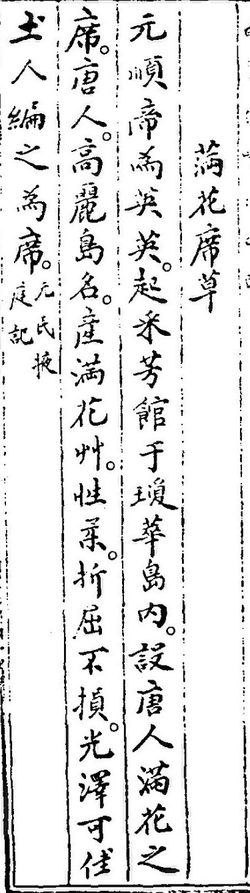 滿花席草
元順帝為英英。起采芳館于瓊華島內。設唐人滿花之
席。唐人。高麗島名。產滿花艸。性柔。折屈不損。光澤可佳
土人編之為席。元氏掖
庭記